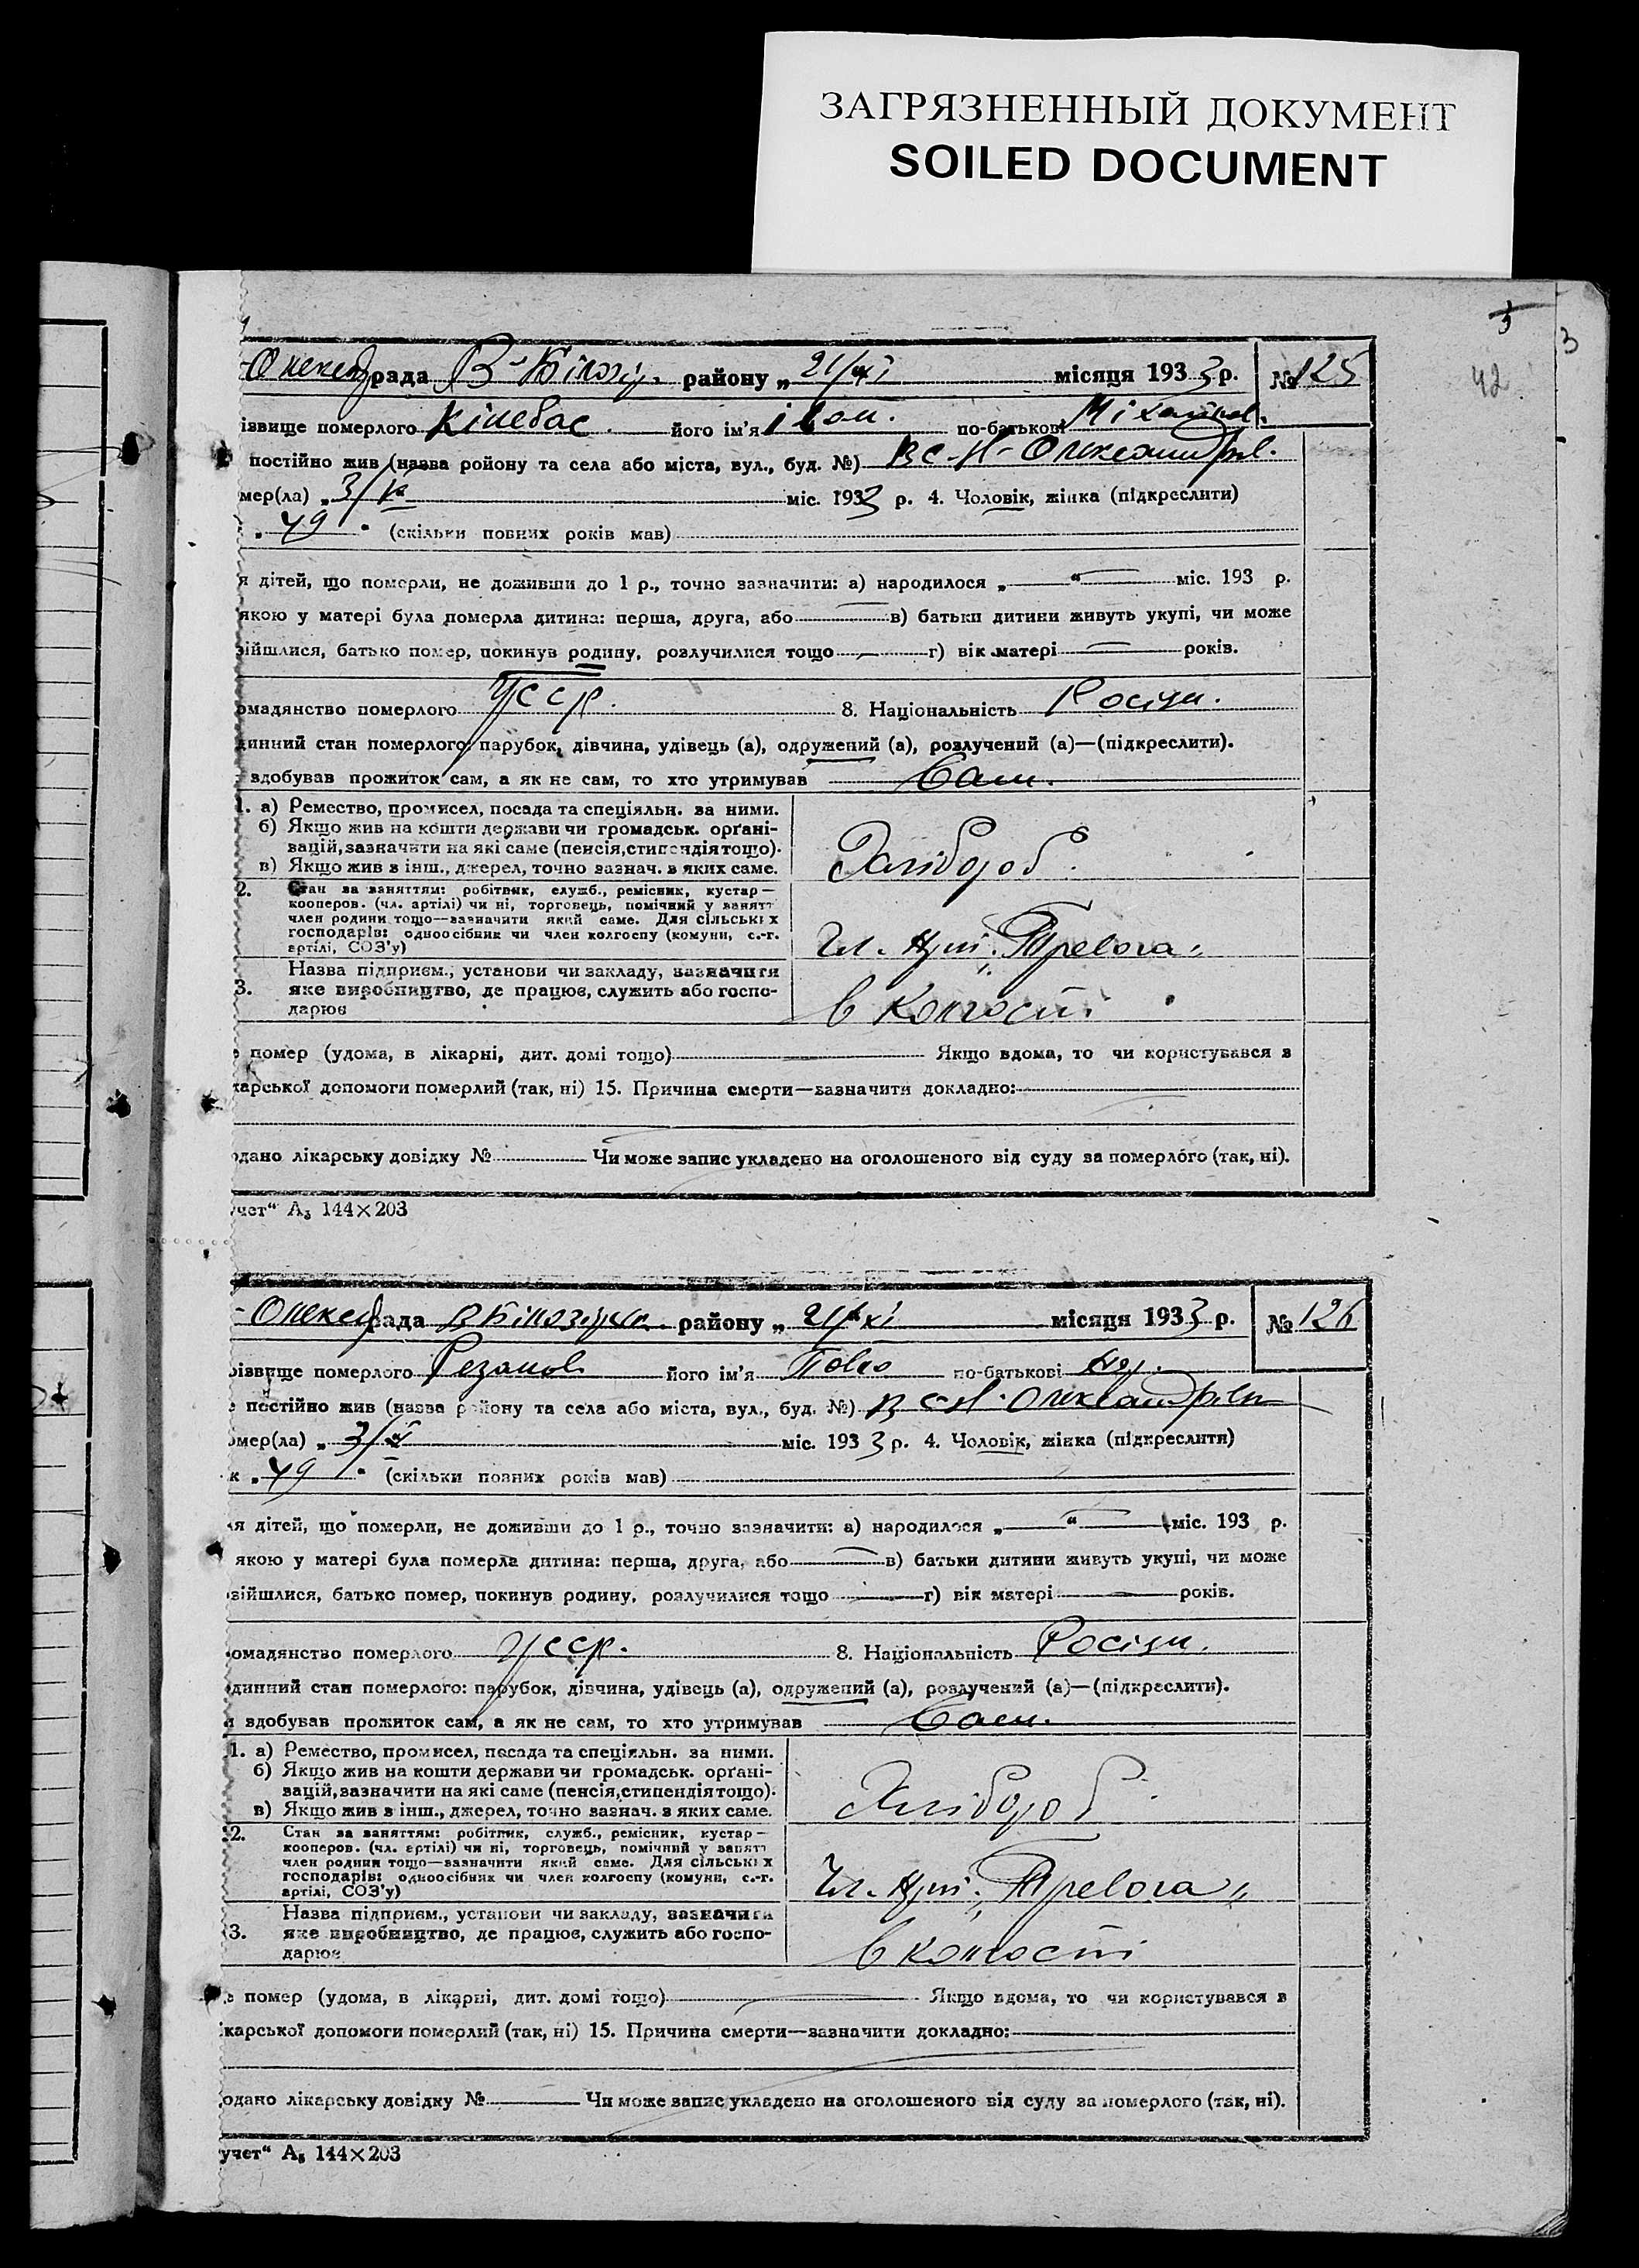 ЗАГРЯЗНЕННЫЙ ДОКУМЕНТ
SOILED DOCUMENT
3
42
рада В-Білозір. району „ 21/XI місяця 1933 р. №125
ізвище померлого його ім'я Іван. по-батькові
постійно жив (назва ройону та села або міста, вул., буд. №) В с. Н-Олександрів.
мер(ла) „ 3/ міс. 1933 р. 4. Чоловік, жінка (підкреслити)
„ 49 " (скільки повних років мав)
я дітей, що померли, не доживши до 1 р., точно зазначити: а) народилося „ — “ — міс. 193 р.
якою у матері була померла дитина: перша, друга, або — в) батьки дитини живуть укупі, чи може
зійшлися, батько помер, покинув родину, розлучилися тощо — г) вік матері — років.
омадянство померлого УССР. 8. Національність Росіян.
динний стан померлого: парубок, дівчина, удівець (а), одружений (а), розлучений (а)—(підкреслити).
вдобував прожиток сам, а як не сам, то хто утримував Сам.
1. а) Ремество, промисел, посада та спеціяльн. за ними.
б) Якщо жив на кошти держави чи громадськ. орґані-
вацій, зазначити на які саме (пенсія, стипендія тощо).
в) Якщо жив з інш., джерел, точно зазнач. з яких саме.
Хлібороб.
2. Стан за заняттям: робітник, служб., ремісник, кустар—
кооперов. (чл. артілі) чи ні, торговець, помічний у занятт
член родини тощо—зазначити який саме. Для сільських
господарів: одноосібник чи член колгоспу (комуни, с.-г.
артілі, СОЗ'у)
Чл. Арт. „Тревога„
Назва підприєм., установи чи закладу, зазначити
3. яке виробництво, де працює, служить або госпо-
дарює
в колгоспі.
е помер (удома, в лікарні, дит. домі тощо) Якщо вдома, то чи користувався з
карської допомоги померлий (так, ні) 15. Причина смерти—зазначити докладно:
одано лікарську довідку № Чи може запис укладено на оголошеного від суду за померлого (так, ні).
учет“ А₅ 144×203
рада В Білозірськ. району „ 21/XI місяця 1933 р. № 126
різвище померлого Резанов його ім'я Павло по-батькові
е постійно жив (назва району та села або міста, вул., буд. №) В с. Н-Олександрівк
омер(ла) „ 3/X міс. 1933 р. 4. Чоловік, жінка (підкреслити)
к „ 49 " (скільки повних років мав)
ля дітей, що померли, не доживши до 1 р., точно зазначити: а) народилося „ — “ — міс. 193 р.
якою у матері була померла дитина: перша, друга, або — в) батьки дитини живуть укупі, чи може
зійшлися, батько помер, покинув родину, розлучилися тощо — г) вік матері — років.
омадянство померлого УССР. 8. Національність Росіян.
динний стан померлого: парубок, дівчина, удівець (а), одружений (а), розлучений (а)—(підкреслити).
и вдобував прожиток сам, а як не сам, то хто утримував Сам.
1. а) Ремество, промисел, посада та спеціяльн. за ними.
б) Якщо жив на кошти держави чи громадськ. орґані-
вацій, зазначити на які саме (пенсія, стипендія тощо).
в) Якщо жив з інш., джерел, точно зазнач. з яких саме.
Хлібороб
2. Стан за заняттям: робітник, служб., ремісник, кустар—
кооперов. (чл. артілі) чи ні, торговець, помічний у занятт
член родини тощо—зазначити який саме. Для сільських
господарів: одноосібник чи член колгоспу (комуни, с.-г.
артілі, СОЗ'у)
Чл. Арт. „Тревога„
Назва підприєм., установи чи закладу, зазначити
3. яке виробництво, де працює, служить або госпо-
дарює
в колгоспі
е помер (удома, в лікарні, дит. домі тощо) Якщо вдома, то чи користувався з
ікарської допомоги померлий (так, ні) 15. Причина смерти—зазначити докладно:
одано лікарську довідку № — Чи може запис укладено на оголошеного від суду за померлого (так, ні).
учет“ А₅ 144×203